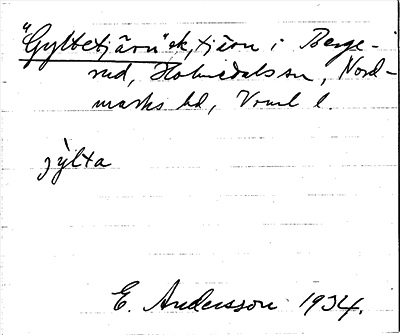 "Gyltetjärn" ek, tjärn i Berge-
rud, Holmedals sn, Nord-
marks hd, Vrml l.
jylta
E. Andersson 1934.